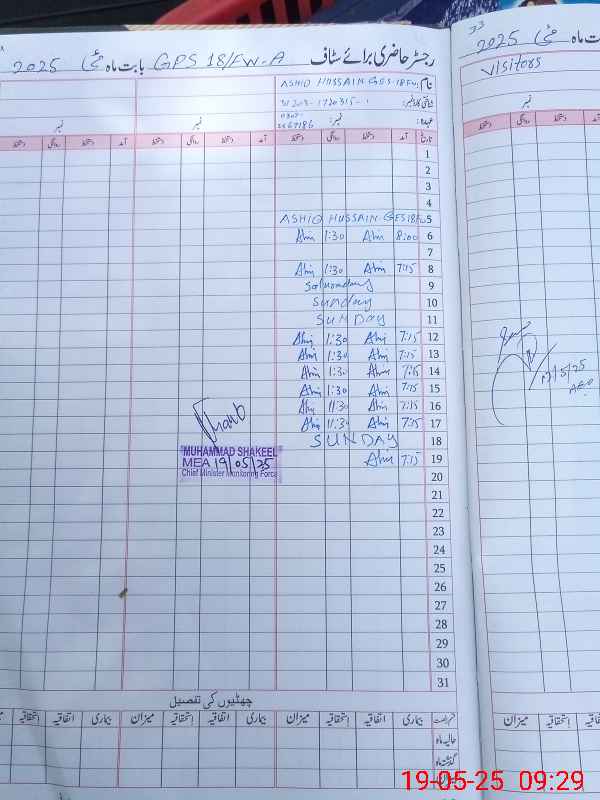 رجسٹر حاضری برائے سٹاف GPS 18/FW-A بابت ماہ مئی 2025
نام: ASHIQ HUSSAIN. GES-18FW
شناختی کارڈ نمبر: 31203-1720315-1
عہدہ: نمبر:
نمبر نمبر
تاریخ آمد دستخط روانگی دستخط آمد دستخط روانگی دستخط آمد دستخط روانگی دستخط
1
2
3
4
5 ASHIQ HUSSAIN. GES18FW
6 8:00 1:30
7
8 7:15 1:30
9
10 Sunday
11 SUNDAY
12 7:15 1:30
13 7:15 1:30
14 7:15 1:30
15 7:15 1:30
16 7:15 11:30
17 7:15 11:30
18 SUNDAY
19 7:15
20
21
22
23
24
25
26
27
28
29
30
31
MUHAMMAD SHAKEEL
MEA 19/05/25
Chief Minister Monitoring Force
چھٹیوں کی تفصیل
قسم رخصت بیماری اتفاقیہ استحقاقیہ میزان بیماری اتفاقیہ استحقاقیہ میزان بیماری اتفاقیہ استحقاقیہ
حالیہ ماہ
گذشتہ ماہ
میزان
33
بابت ماہ مئی 2025
Visitors
نمبر
دستخط روانگی دستخط
میزان استحقاقیہ
19-05-25 09:29